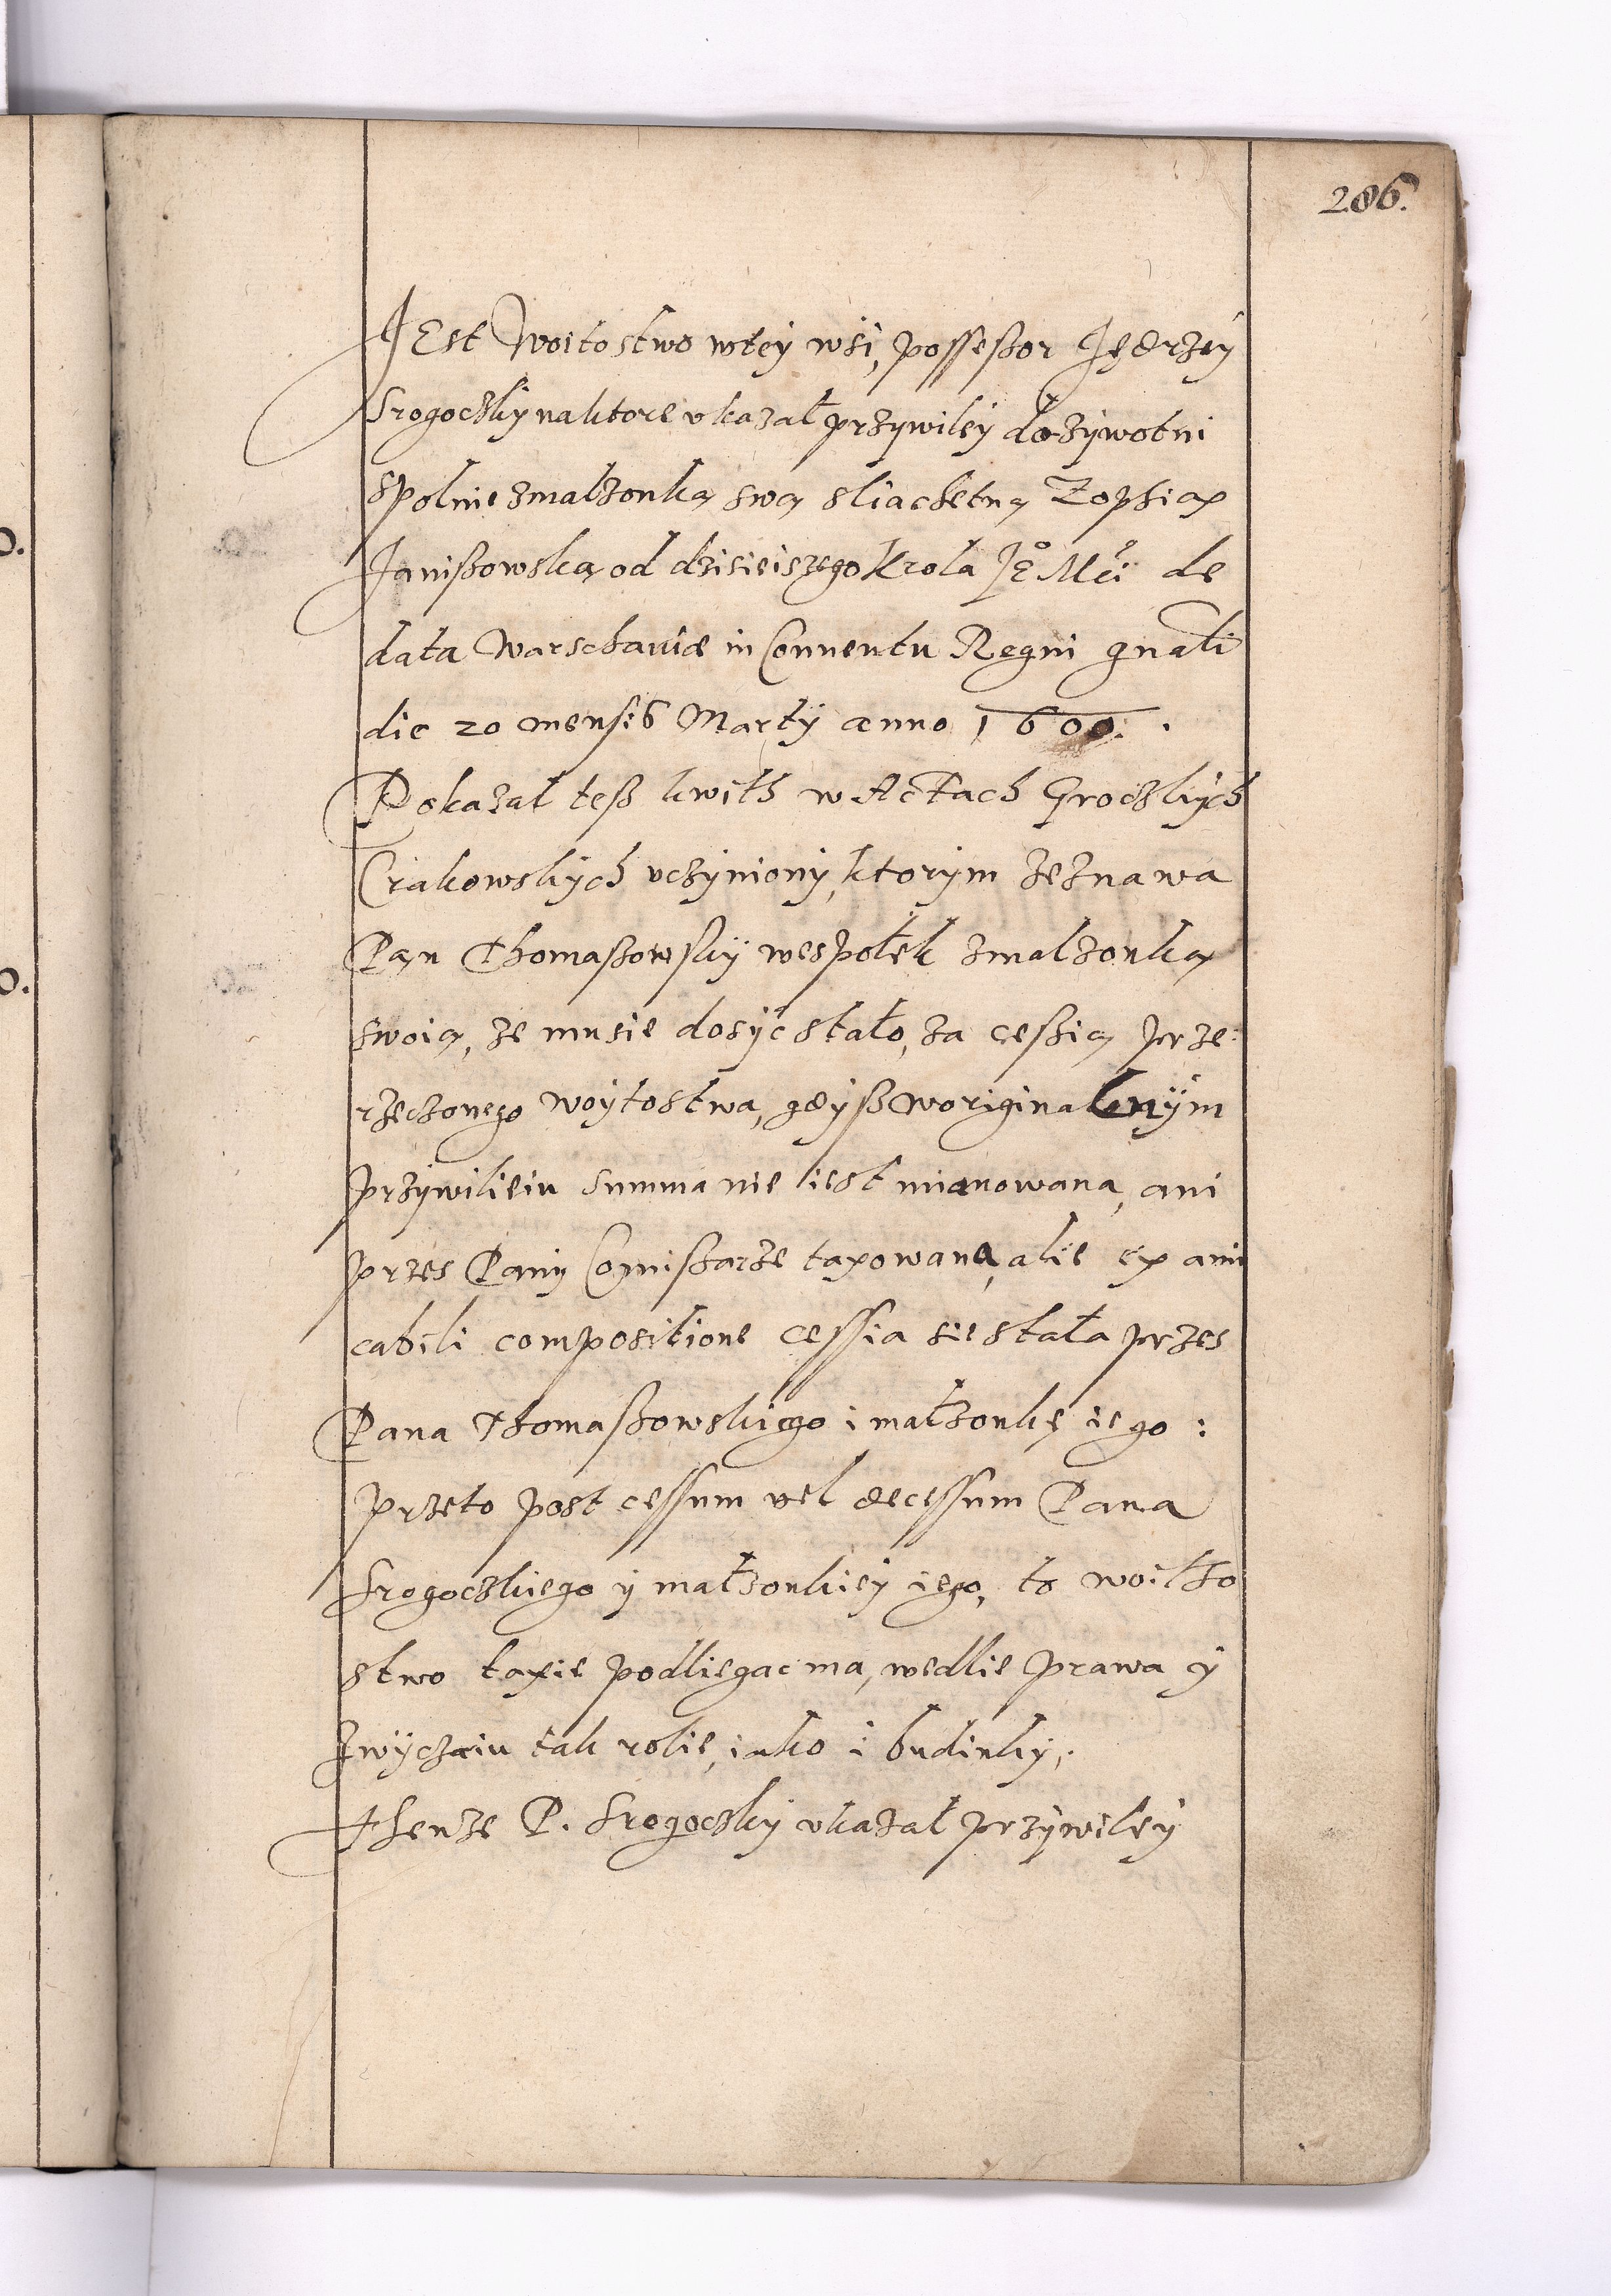 286.
JEst Woitostwo wtey wsi, posseßor Jędrzey
Srogoczky na ktore vkazał przywiley dożywotni
spolnie zmalzonką swą sliachetną Zophią
Janißowską od dzisieiszego Krola Je° Mći de
data Warschauiæ in Conuentu Regni gnali
die 20 mensis Martÿ anno 1600.
Pokazał teß kwith w Actach Groczkych
Crakowskych vczyniony, ktorym zeznawa
Pan Thomaßowsky wespołek zmalzonką
swoią, że mu sie dosyć stało, za ceßią prze
rzeczonego woytostwa, gdyß w originalnÿm
Przywilieiu summa nie iest mianowana, ani
przes Pany Comißarze taxowana, alie ex ami
cabili compositione cessia sie stała przes
Pana Thomaßowskiego i małzonkę iego:
Przeto post cessum vel decessum Pana
Srogoczkiego ÿ małzonkiey iego, to woitho
stwo taxie podliegac ma, wedlie prawa ÿ
zwÿczaiu tak rolie, iako i budinky;
Thenze P. Srogoczky vkazał przywiley
0.
0.